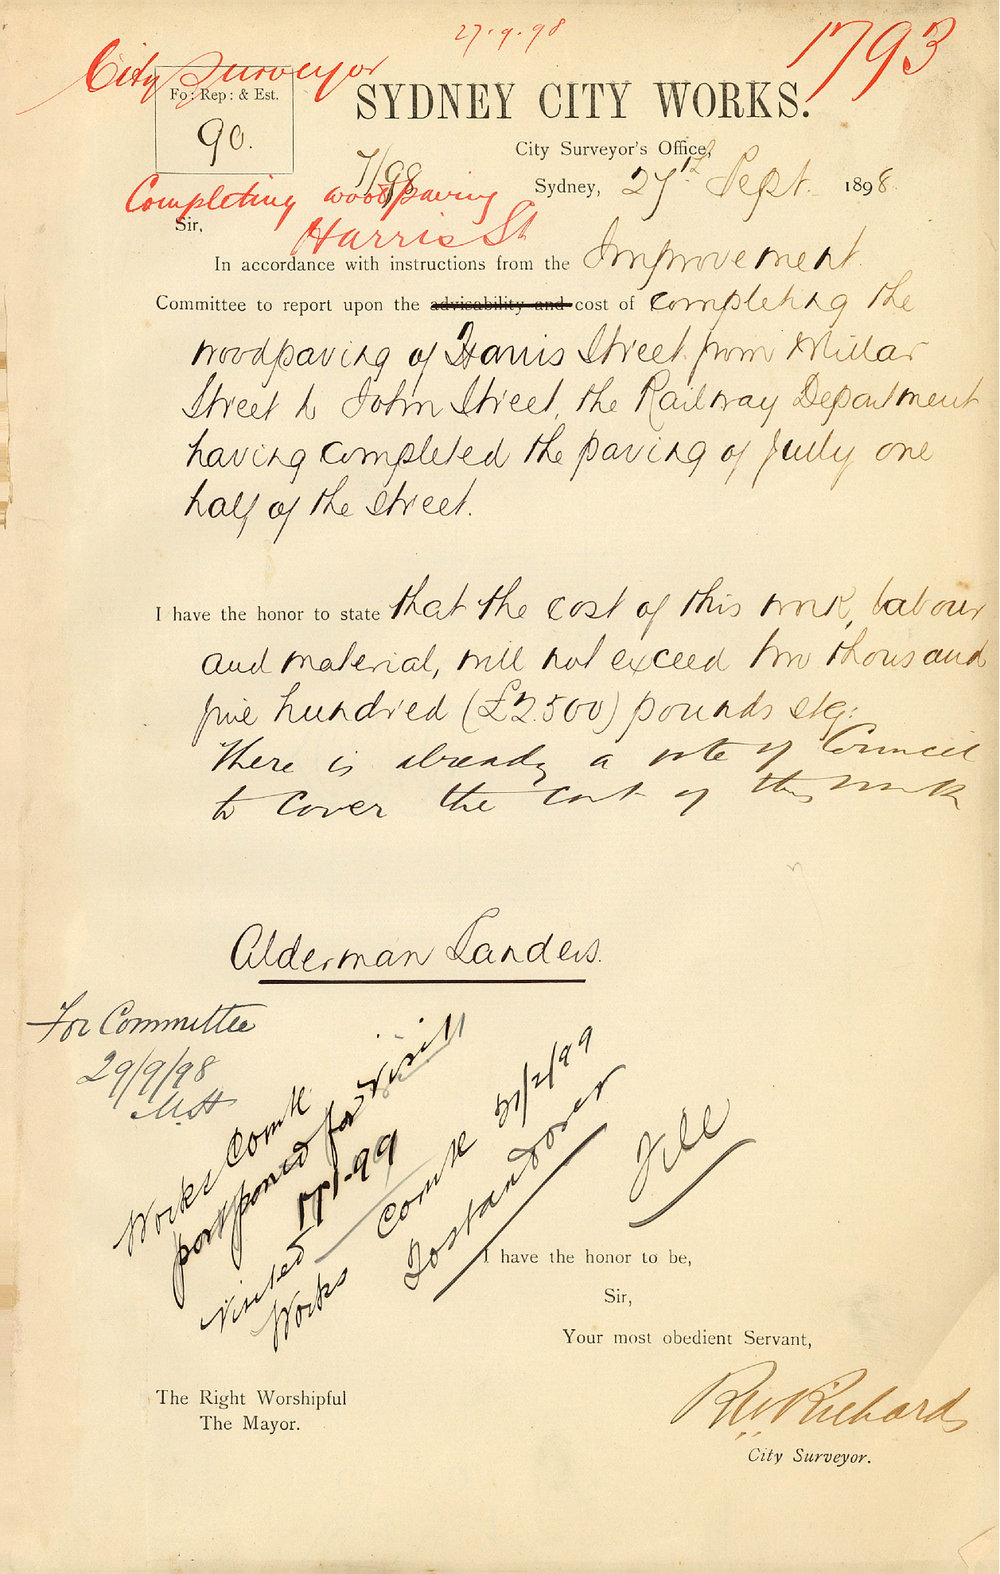 27.9.98
1793
City Surveyor
Fo: Rep: & Est.
90.
7/98
SYDNEY CITY WORKS.
City Surveyor's Office,
Sydney, 27th Sept. 1898.
Completing woodpaving
Harris St
Sir,
In accordance with instructions from the Improvement
Committee to report upon the advisability and cost of completing the
woodpaving of Harris Street from Millar
Street to John Street, the Railway Department
having completed the paving of fully one
half of the street.
I have the honor to state that the cost of this work, labour
and material, will not exceed two thousand
five hundred (£2.500) pounds stg:
There is already a vote of Council
to cover the cost of this work
Alderman Landers.
For Committee
29/9/98
Works Comte
postponed for visit
Visited 17/1.99
Works Comte 21/2/99
To stand over
File
I have the honor to be,
Sir,
Your most obedient Servant,
The Right Worshipful
The Mayor.
RW Richards
City Surveyor.